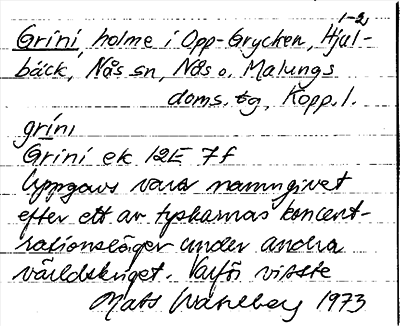 1-2
Grini, holme i Opp-Grycken, Hjul-
bäck, Nås sn, Nås o. Malungs
doms. tg, Kopp. l.
grìnı
Grini ek 12E 7f
Uppgavs vara namngivet
efter ett av tyskarnas koncent-
rationsläger under andra
världskriget. Varför visste
Mats Wahlberg 1973